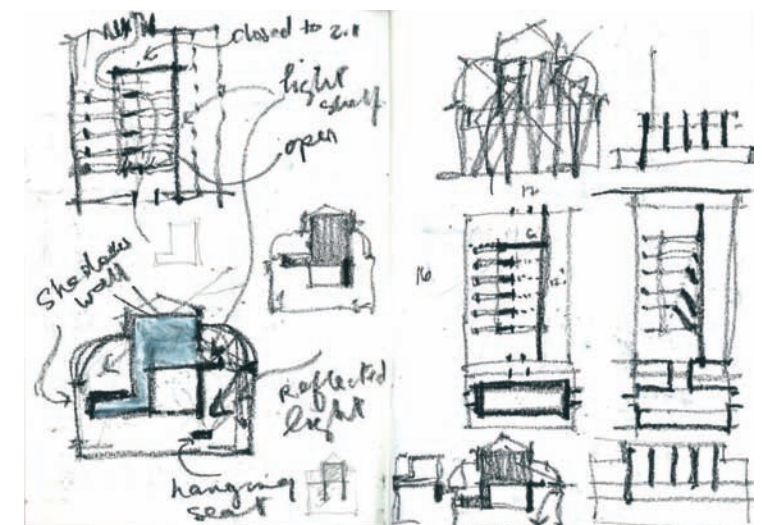 closed to 2.1
light
shelf
open
Shadows
wall
Reflected
light
hanging
seat
12
16